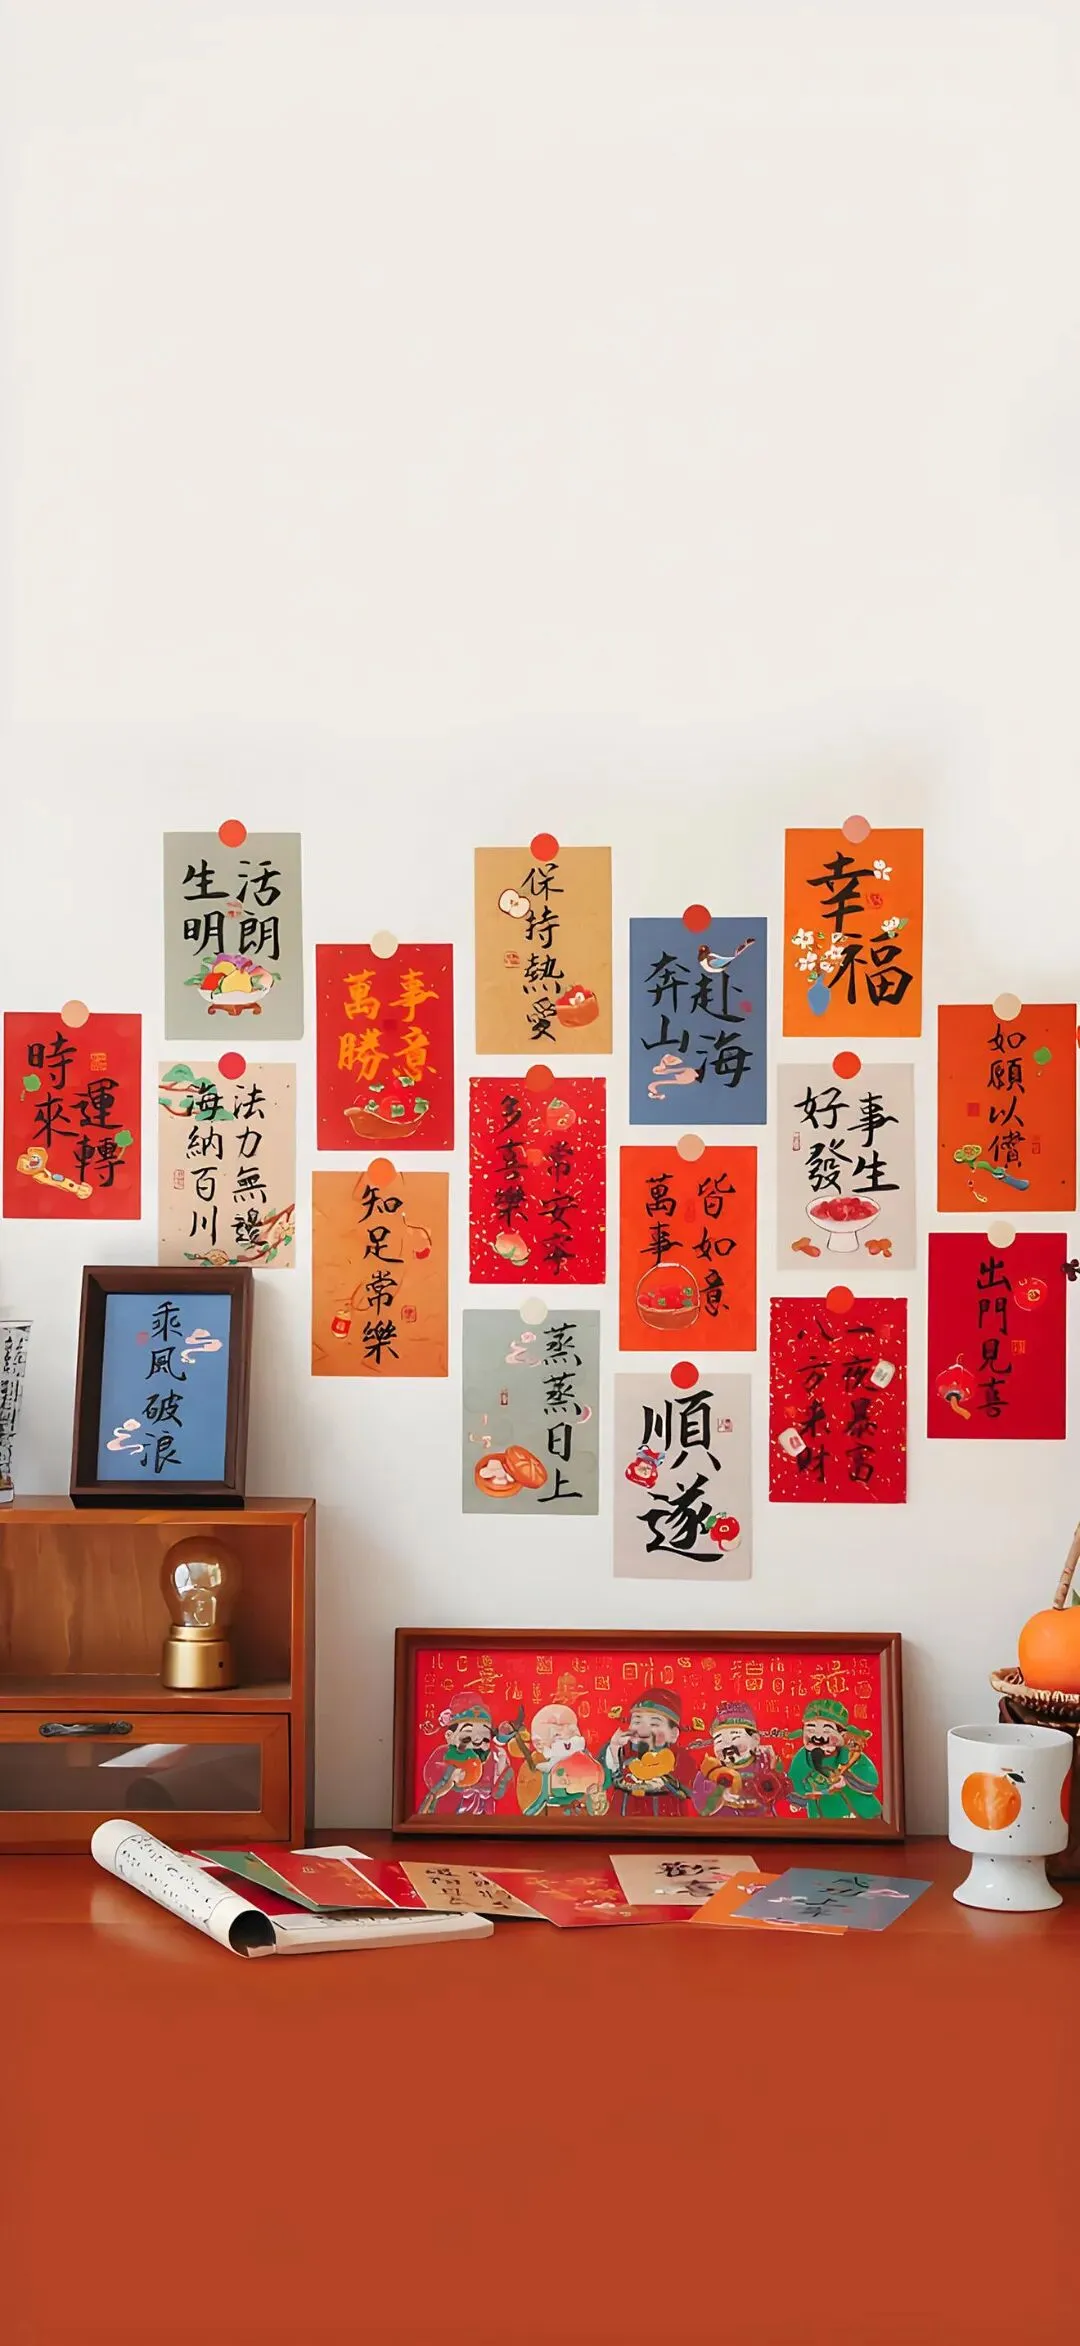 生活
明朗
保持熱愛
幸福
萬事
勝意
奔赴
山海
時來
運轉
法力無邊
海納百川
如願以償
好事
發生
多喜樂
常安寧
萬事
皆如意
知足常樂
出門見喜
乘風破浪
蒸蒸日上
一夜暴富
八方来财
順遂